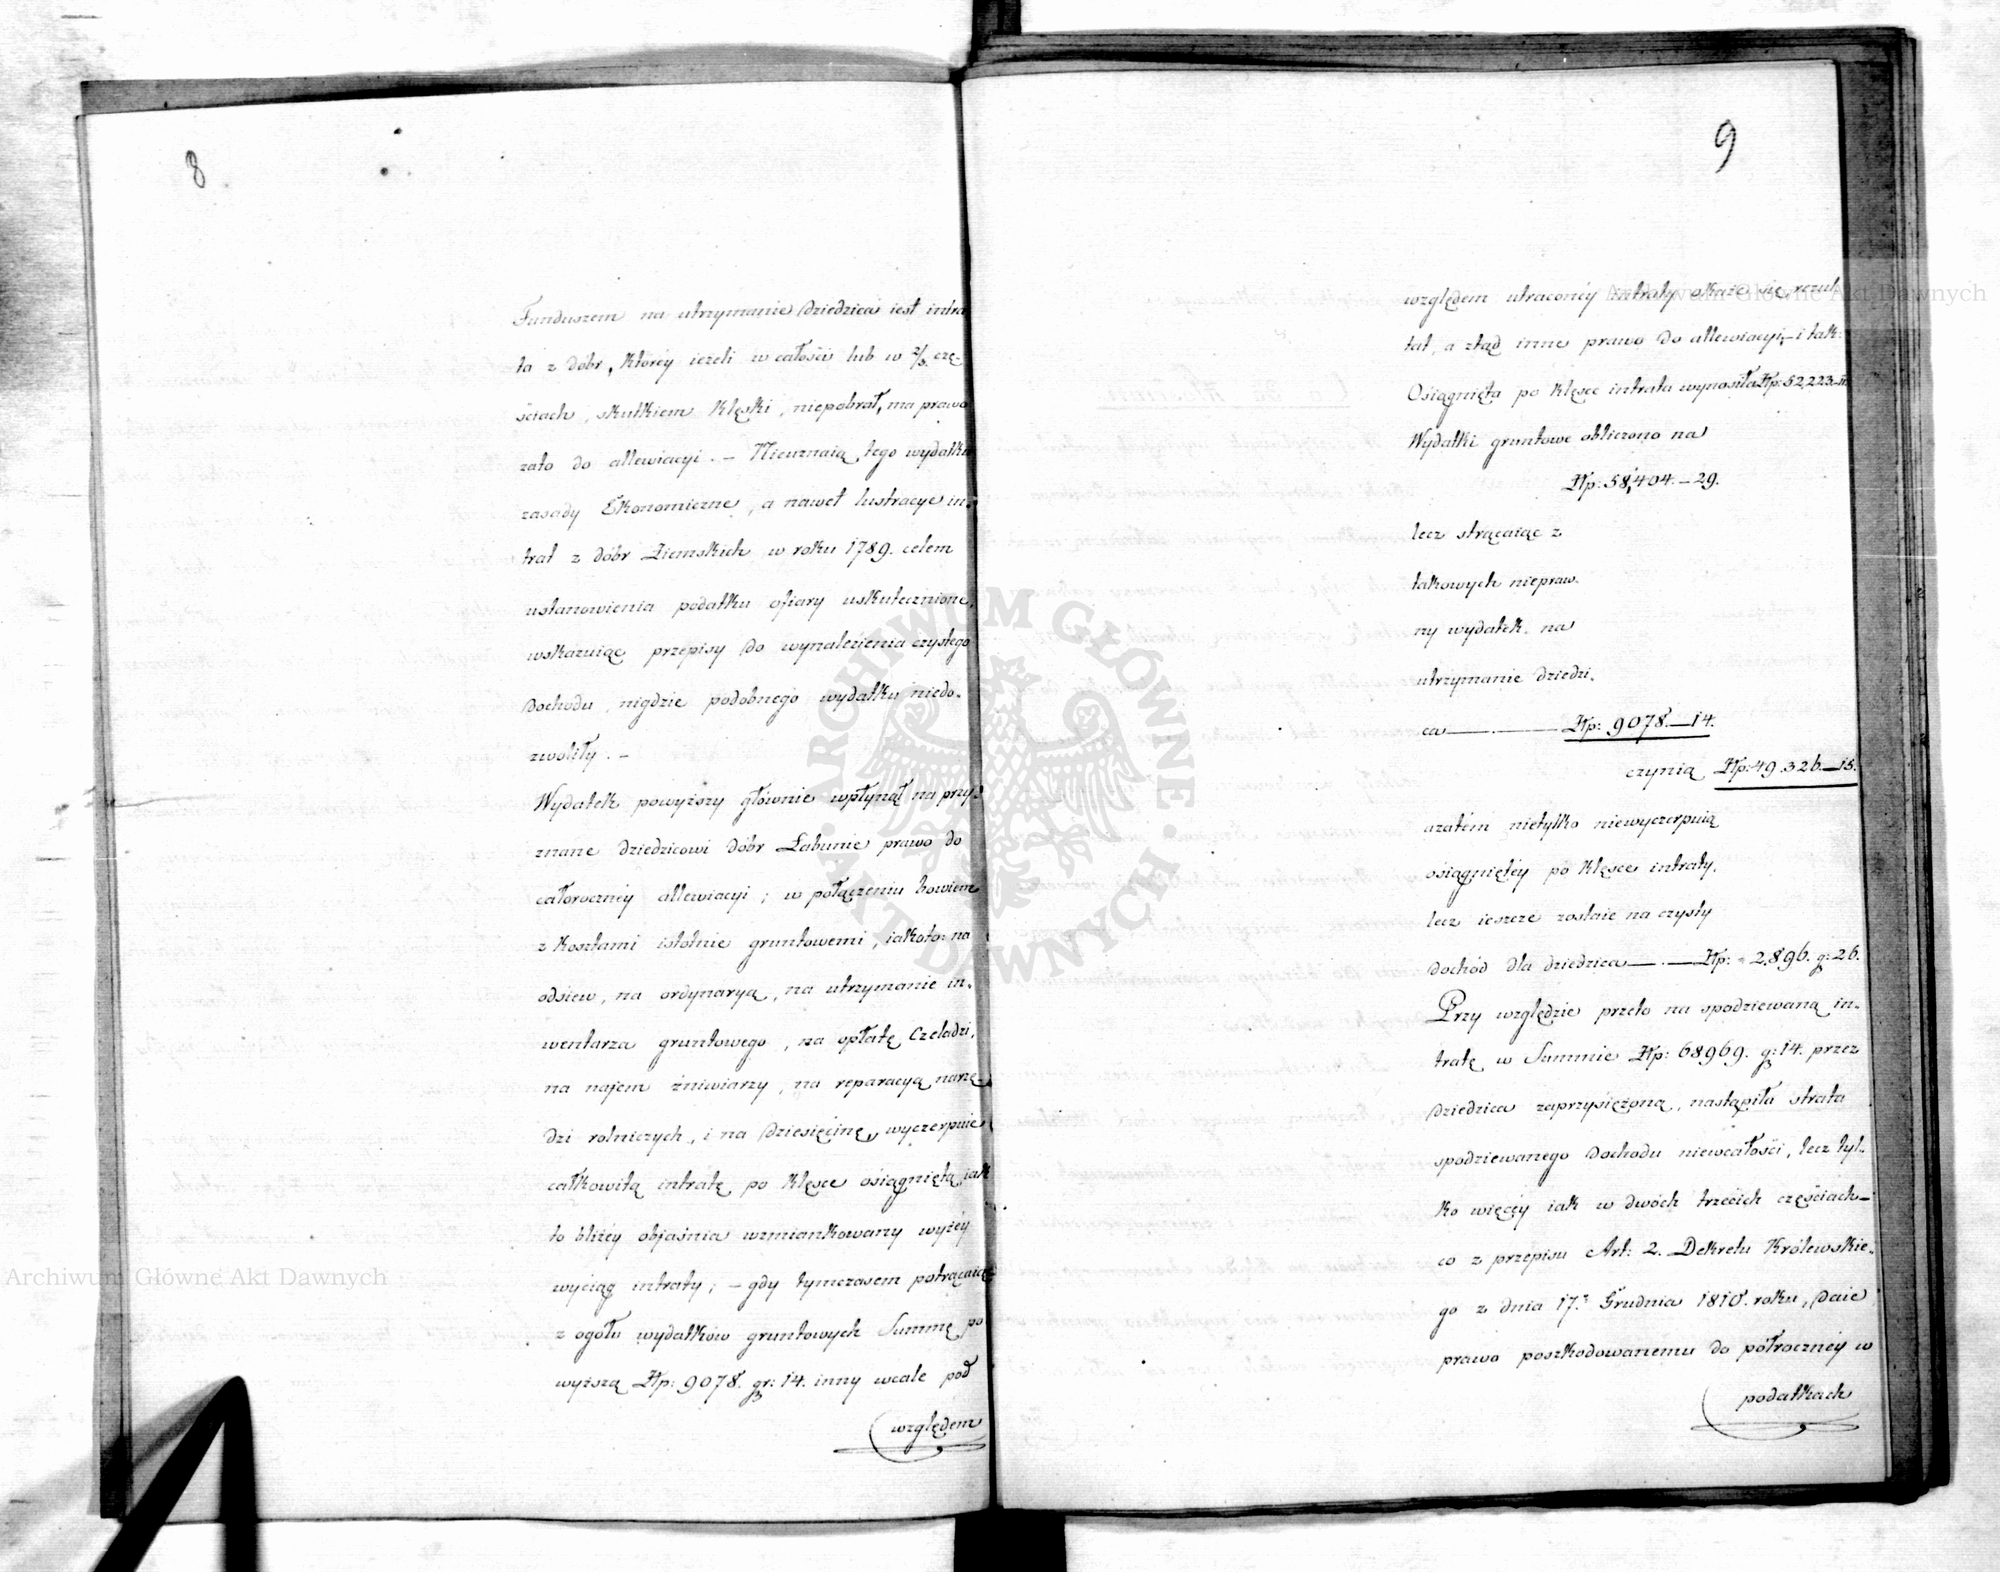 8
Funduszem na utrzymanie Dziedzica iest intra
ta z dóbr, któréy ieżeli w całości lub w 2/3 czę-
ściach, skutkiem klęski, niepobrał, ma prawo
zato do allewiacyi. – Nieuznaią tego wydatku
zasady Ekonomiczne, a nawet lustracye in-
trat z dóbr Ziemskich w roku 1789. celem
ustanowienia podatku ofiary uskutecznione,
wskazuiąc przepisy do wynalezienia czystego
dochodu, nigdzie podobnego wydatku niedo-
zwoliły. –
Wydatek powyższy głównie wpłynął na przy-
znane dziedzicowi dóbr Łabunie prawo do
całorocznéy allewiacyi; w połączeniu bowiem
z kosztami istotnie gruntowemi, iakoto: na
odsiew, na ordynaryą, na utrzymanie in-
wentarza gruntowego, na opłatę Czeladzi,
na najem żniwiarzy, na reparacyą narzę
dzi rolniczych, i na dziesięcinę, wyczerpuie
całkowitą intratę po klęsce osiągniętą, iak
to bliżéy objaśnia wzmiankowany wyżéy
wyciąg intraty; – gdy tymczasem potrącaiąc
z ogółu wydatków gruntowych Summę po
wyższą Złp: 9078. gr: 14. inny wcale pod
względem
9
względem utraconéy intraty okaże się rezul-
tat, a ztąd inne prawo do allewiacyi – i tak:
Osiągnięta po klęsce intrata wynosiła Złp: 52,223.
Wydatki gruntowe obliczono na
Złp: 58,404. – 29.
lecz strącaiąc z
takowych niepraw-
ny wydatek na
utrzymanie dziedzi-
ca — . — Złp: 9078. — 14.
czynią Złp: 49.326. — 15.
azatém nietylko niewyczerpuią
osiągniętéy po klęsce intraty,
lecz ieszcze zostaie na czysty
dochód dla dziedzica — . — Złp: 2,896. g: 26.
Przy względzie przeto na spodziewaną in-
tratę w Summie Złp: 68969. g: 14. przez
dziedzica zaprzysiężoną, nastąpiła strata
spodziewanego dochodu niewcałości, lecz tyl-
ko więcéy iak w dwóch trzecich częściach –
co z przepisu Art: 2. Dekretu Królewskie-
go z dnia 17. Grudnia 1810. roku, daie
prawo poszkodowanemu do półrocznéy w
podatkach
ARCHIWUM GŁÓWNE AKT DAWNYCH
Archiwum Główne Akt Dawnych
Archiwum Główne Akt Dawnych